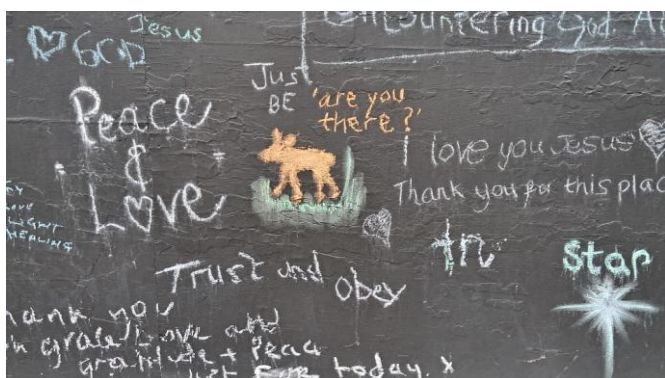 Jesus
♡ GOD
Encountering God. A
Just
BE
'are you
there?'
Peace
&
Love
I love you Jesus
Thank you for this plac
LIGHT
HEALING
Trust and
obey
Star
hank you
grace, Love and
gratitude + Peace
just for today. x